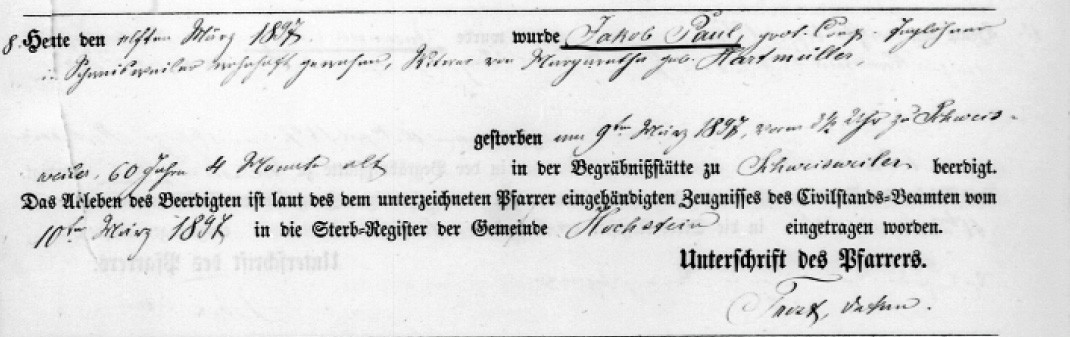 8. Heute den elften März 1897 wurde Jakob Paul, prot. Conf. Taglöhner
in Schweisweiler wohnhaft gewesen, Witwer von Margaretha geb. Hartmüller,
gestorben am 9ten März 1897, vorm 2½ Uhr zu Schweis-
weiler, 60 Jahre 4 Monate alt in der Begräbnißstätte zu Schweisweiler beerdigt.
Das Ableben des Beerdigten ist laut des dem unterzeichneten Pfarrer eingehändigten Zeugnisses des Civilstands-Beamten vom
10ten März 1897 in die Sterb-Register der Gemeinde Hochstein eingetragen worden.
Unterschrift des Pfarrers.